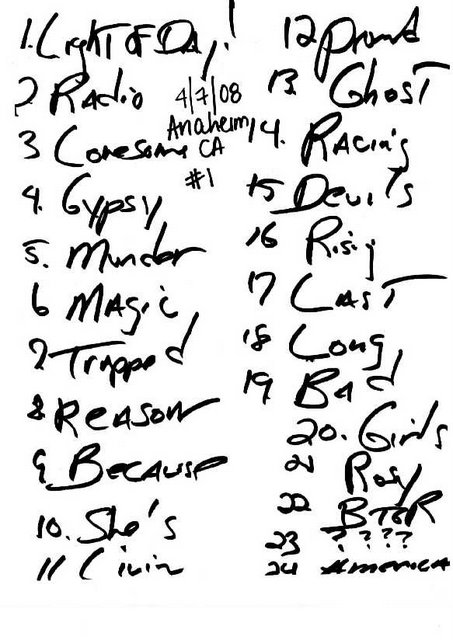 1. Light OF Day!
2 Radio
3 Lonesome
4. Gypsy
5. Murder
6 Magic
7 Trapped
8 Reason
9 Because
10. She's
11 Livin
4/7/08
Anaheim,
CA
#1
12
13 Ghost
14. Racing
15 Devil's
16 Rising
17 Last
18 Long
19 Bad
20. Girls
21 Rosy
22 BTOR
23 ? ? ? ?
24 America